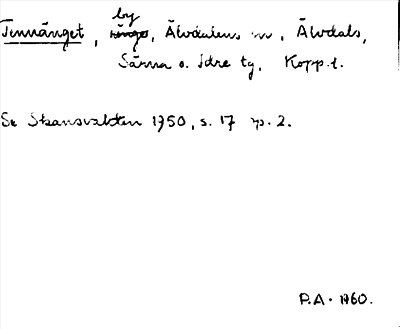 Tennänget, by, Älvdalens sn, Älvdals,
Särna o. Idre tg, Kopp.l.
Se Skansvakten 1950, s. 17 sp. 2.
P.A. 1960.